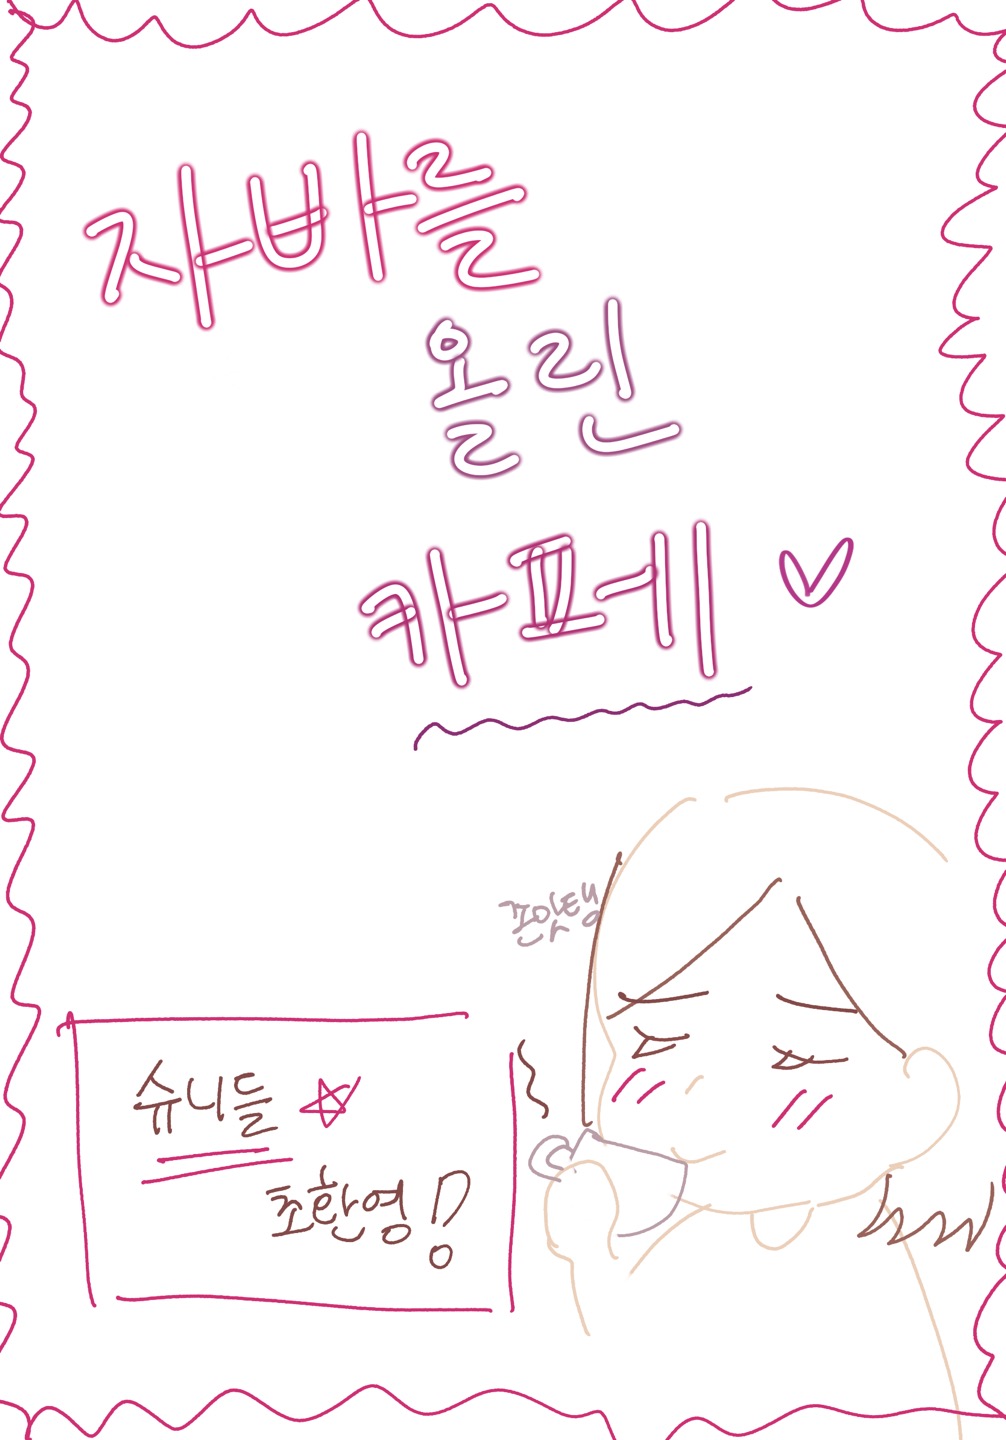 자바를
올린
카페♡
슈니들☆
초환영!